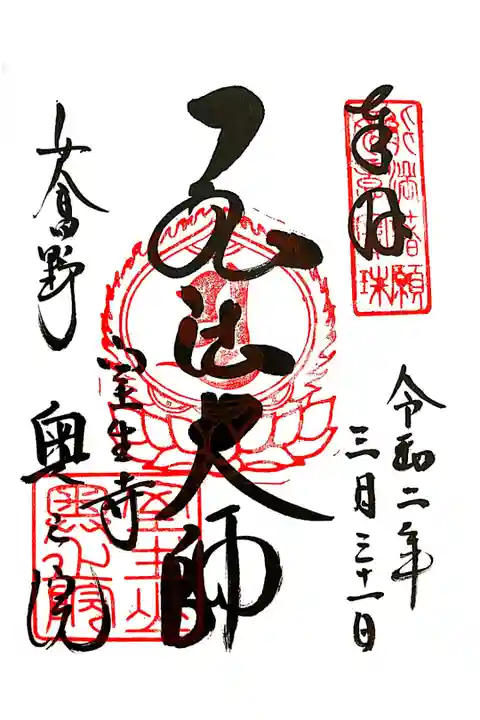 奉拝
能満諸願
令和二年
三月三十一日
弘法大師
女人高野
室生寺
奥之院